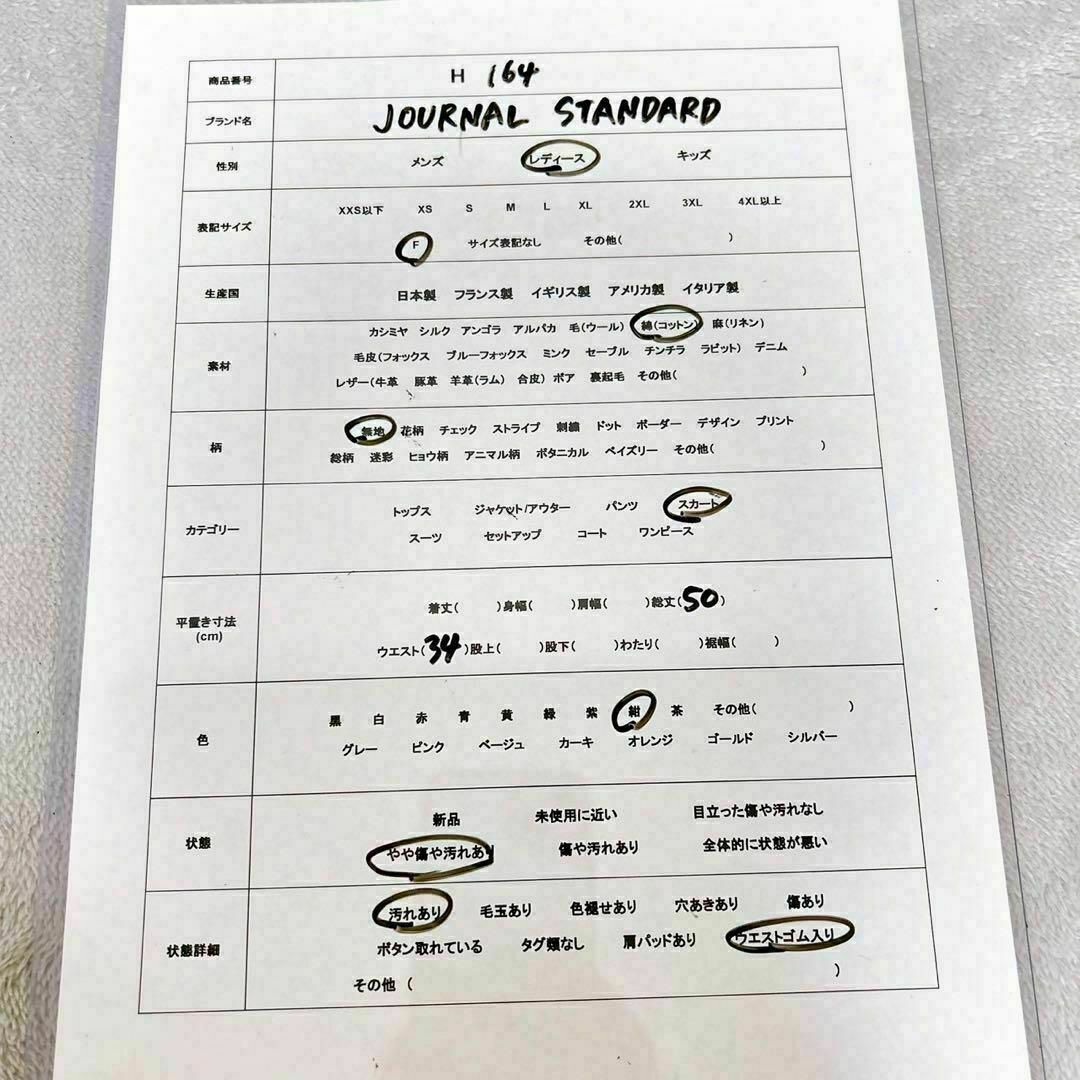 商品番号 H 164
ブランド名 JOURNAL STANDARD
性別 メンズ レディース キッズ
XXS以下 XS S M L XL 2XL 3XL 4XL以上
表記サイズ
F サイズ表記なし その他( )
生産国 日本製 フランス製 イギリス製 アメリカ製 イタリア製
カシミヤ シルク アンゴラ アルパカ 毛(ウール) 綿(コットン) 麻(リネン)
素材 毛皮(フォックス ブルーフォックス ミンク セーブル チンチラ ラビット) デニム
レザー(牛革 豚革 羊革(ラム) 合皮) ボア 裏起毛 その他( )
無地 花柄 チェック ストライプ 刺繍 ドット ボーダー デザイン プリント
柄
総柄 迷彩 ヒョウ柄 アニマル柄 ボタニカル ペイズリー その他( )
トップス ジャケット/アウター パンツ スカート
カテゴリー
スーツ セットアップ コート ワンピース
着丈( )身幅( )肩幅( )総丈(50)
平置き寸法
(cm)
ウエスト(34)股上( )股下( )わたり( )裾幅( )
黒 白 赤 青 黄 緑 紫 紺 茶 その他( )
色
グレー ピンク ベージュ カーキ オレンジ ゴールド シルバー
新品 未使用に近い 目立った傷や汚れなし
状態
やや傷や汚れあり 傷や汚れあり 全体的に状態が悪い
汚れあり 毛玉あり 色褪せあり 穴あきあり 傷あり
状態詳細 ボタン取れている タグ類なし 肩パッドあり ウエストゴム入り
その他 ( )